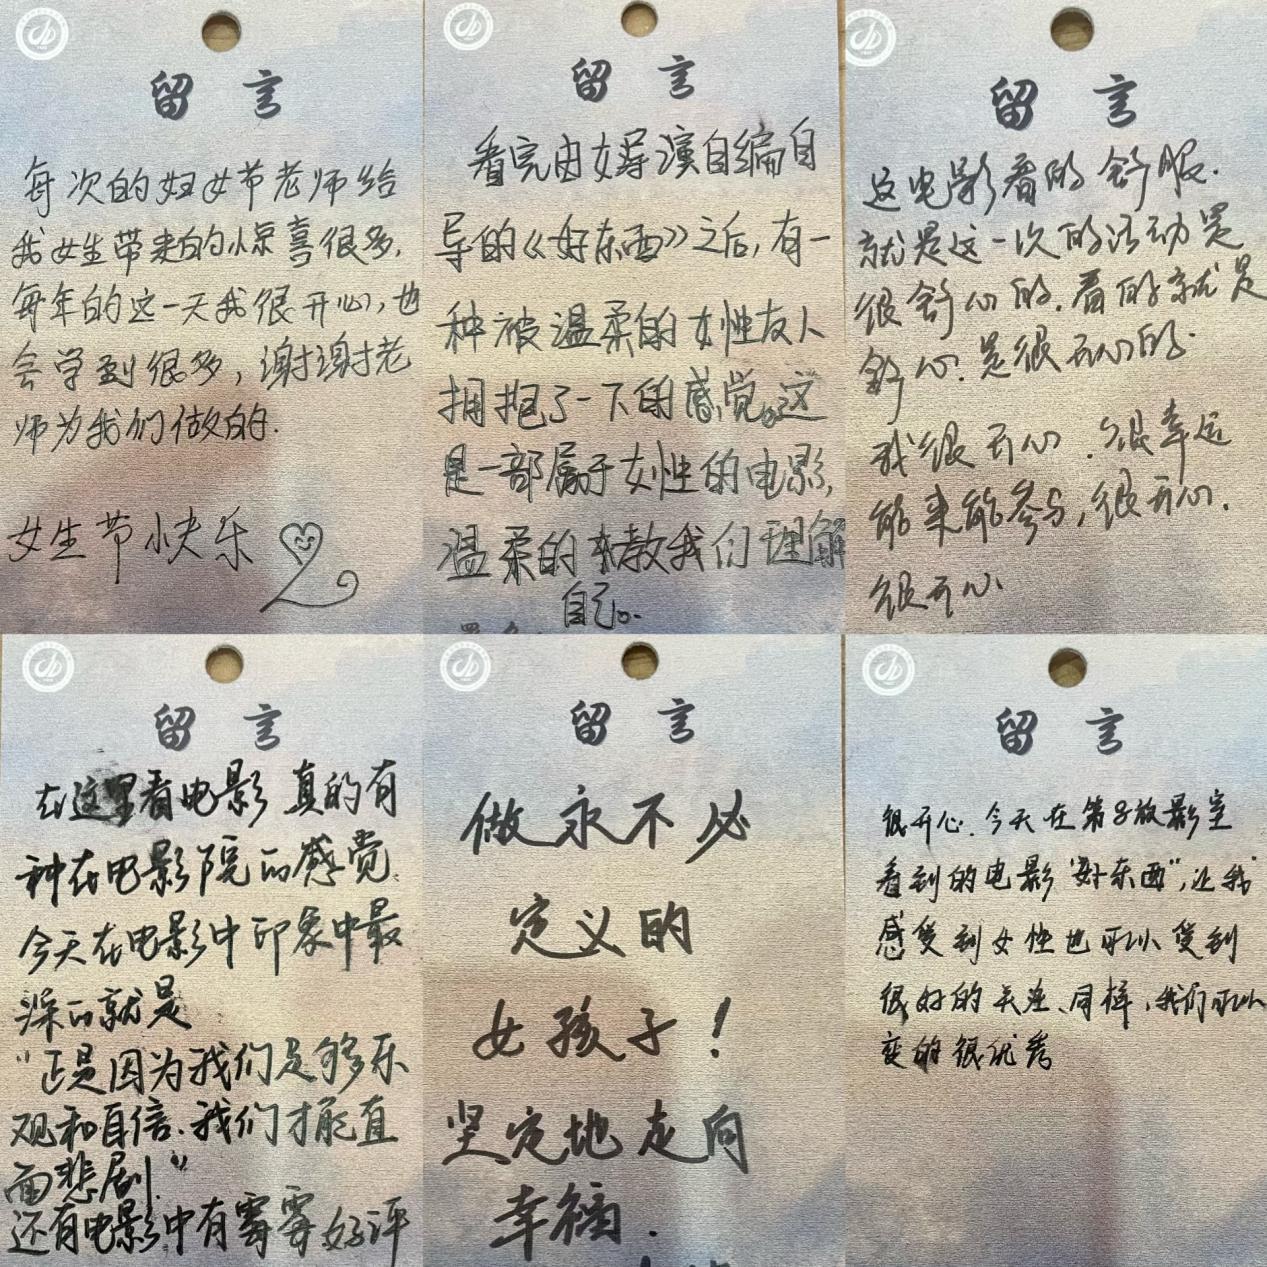 留言
每次的妇女节老师给
我女生带来的小惊喜很多,
每年的这一天我很开心,也
会学到很多,谢谢老
师为我们做的.
女生节小快乐
留言
看完由女导演自编自
导的《好东西》之后,有一
种被温柔的女性友人
拥抱了一下的感觉。这
是一部属于女性的电影,
温柔的来教我们理解
自己。
留言
这电影看的舒服.
就是这一次的活动是
很舒心的.看的就是
舒心.是很开心的.
我很开心.很幸运
能来能参与,很开心.
很开心
留言
在这里看电影真的有
种在电影院的感觉.
今天在电影中印象中最
深的就是
“正是因为我们足够乐
观和自信.我们才能直
面悲剧.”
还有电影中有霉霉好评
留言
做永不必
定义的
女孩子!
坚定地走向
幸福.
留言
很开心.今天在第8放影室
看到的电影“好东西”,让我
感受到女性也可以受到
很好的关注、同样,我们可以
变的很优秀